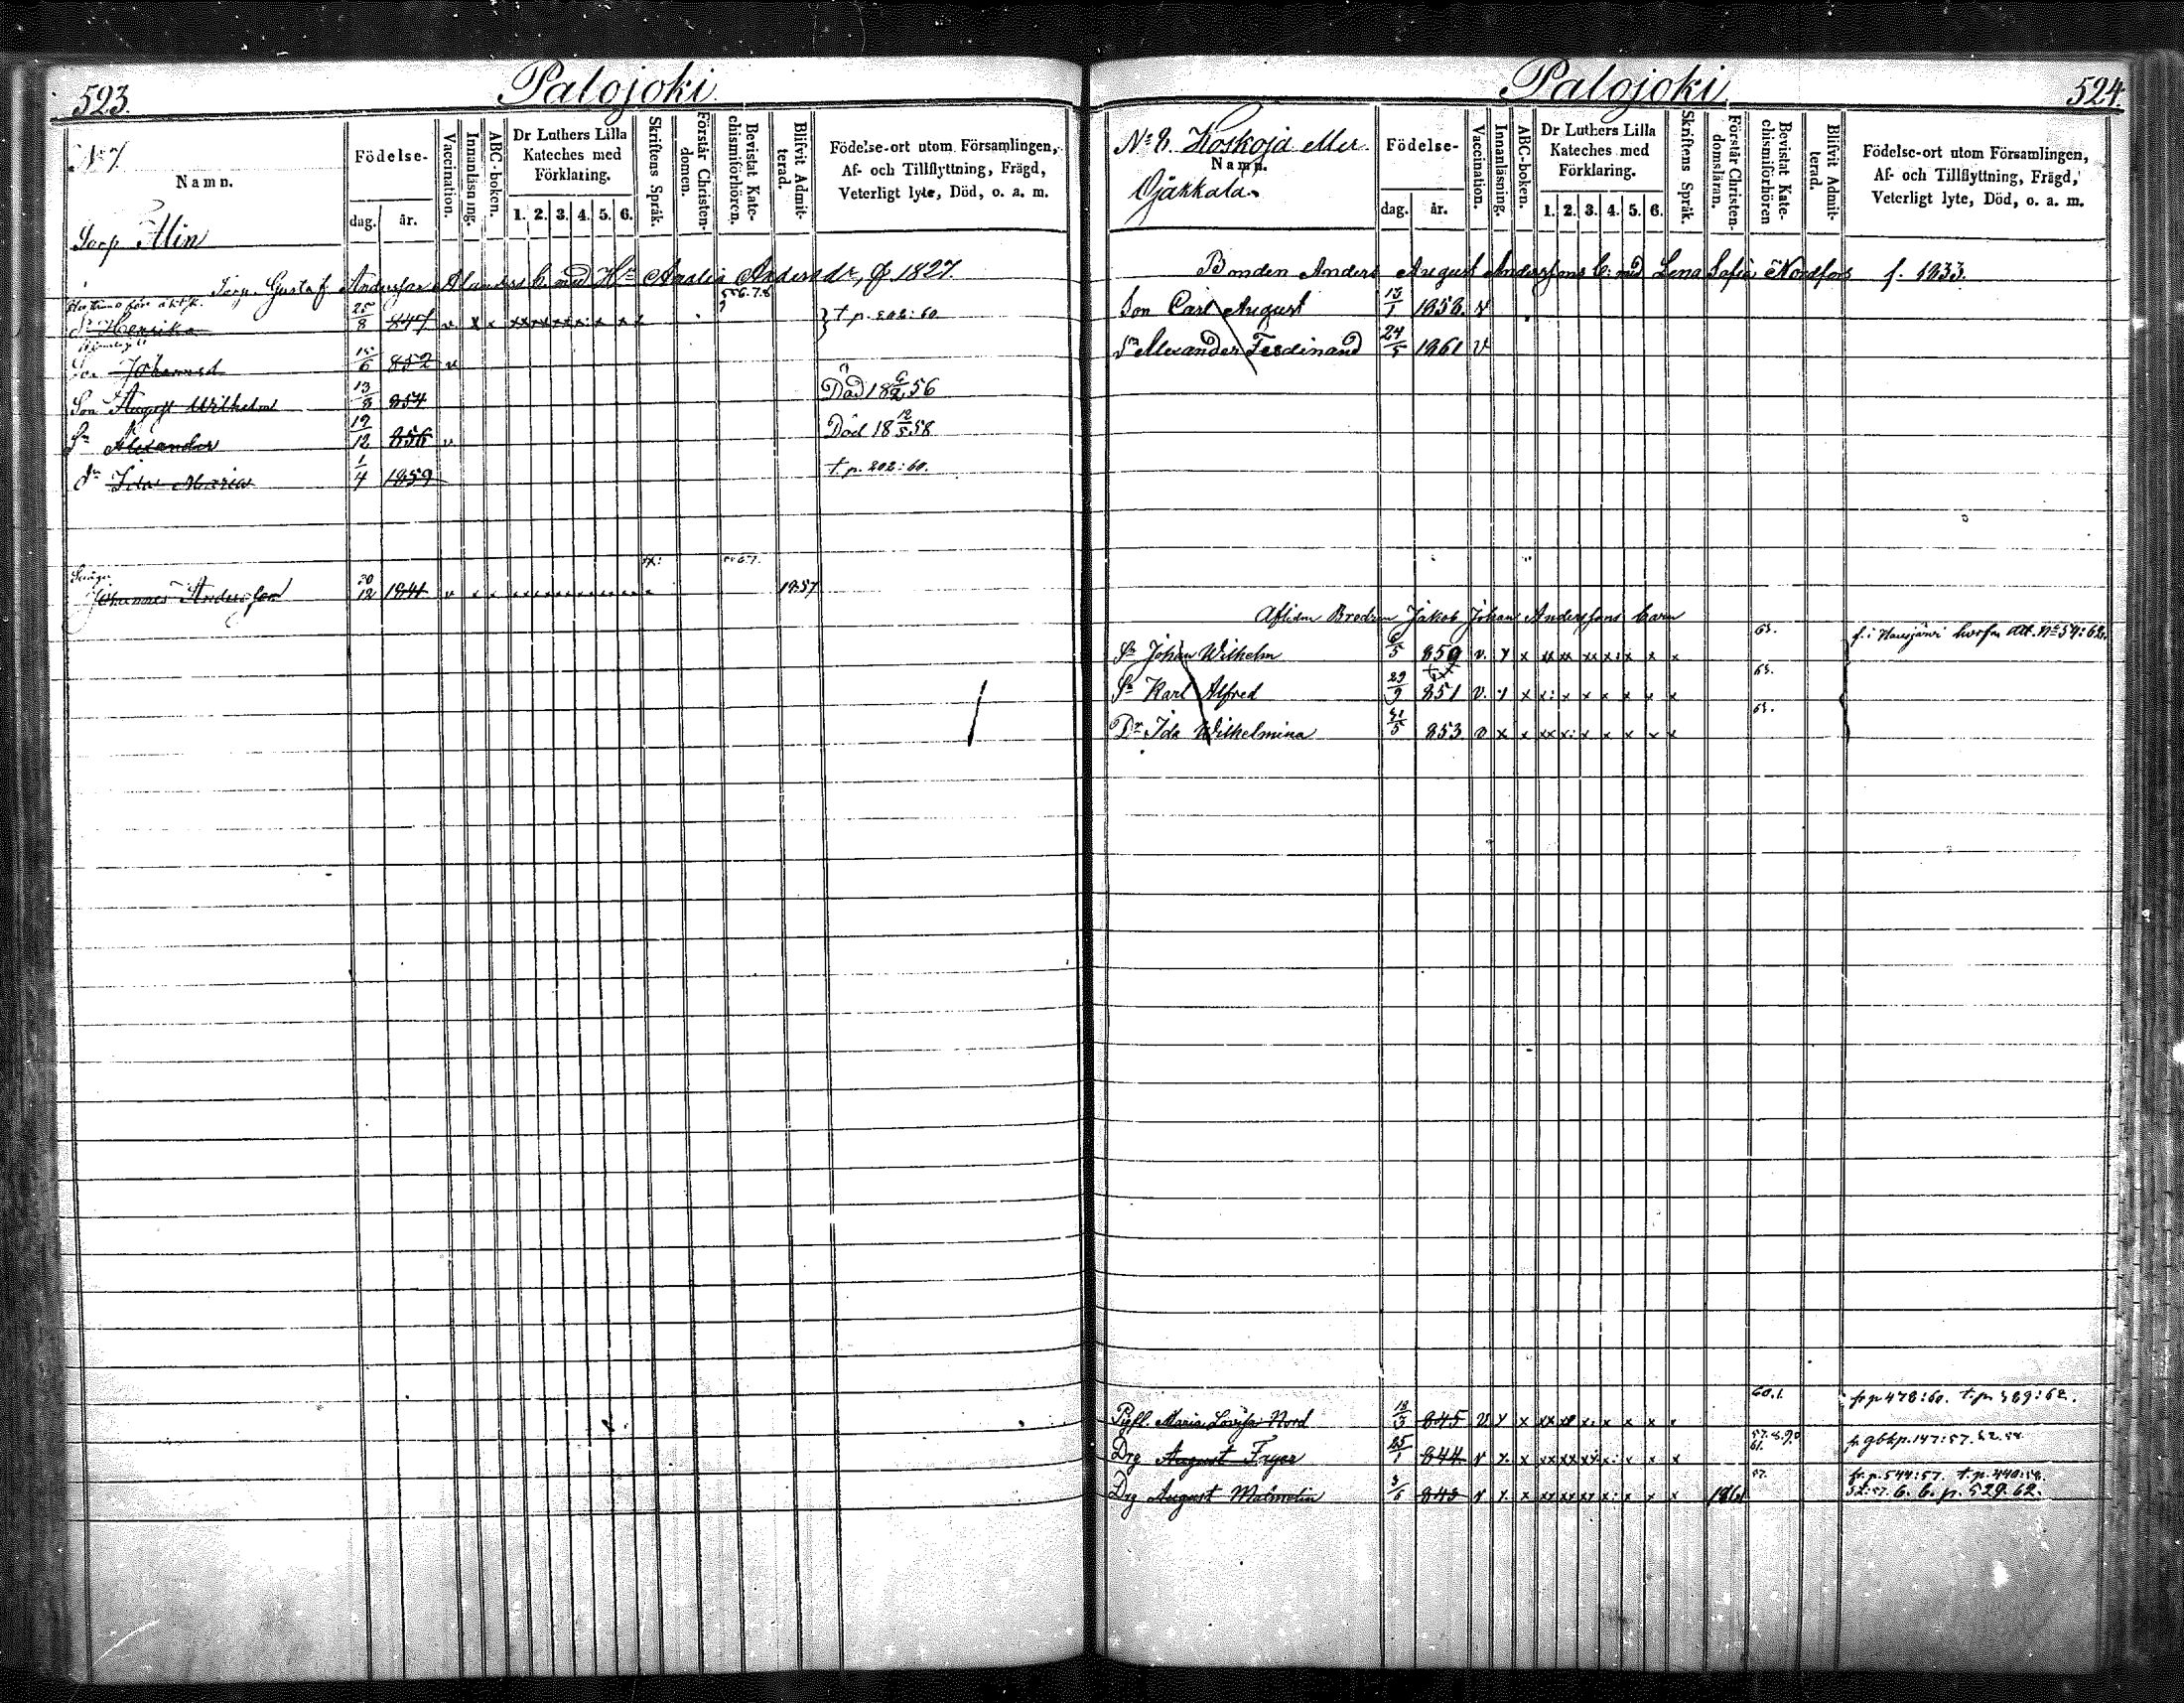 523.
Palojoki
No 7.
Namn.
Födelse-
dag.
år.
Vaccination.
Innanläsning.
ABC-boken.
Dr Luthers Lilla
Kateches med
Förklaring.
1. 2. 3. 4. 5. 6.
Skriftens Språk.
Förstår Christen-
domen.
Bevistat Kate-
chismiförhören.
Blifvit Admit-
terad.
Födelse-ort utom Församlingen,
Af- och Tillflyttning, Frägd,
Veterligt lyte, Död, o. a. m.
Torp Alin
Torp. Gustaf Andersson Alanders b. med Hu Amalia Andersdr, f 1827.
Dr Henrika 25/8 847 v t. p. 202:60.
Son Johannes 15/6 852 v
Son August Wilhelm 13/8 854 Död 18 6/2 56
Sn Alexander 19/12 856 v Död 18 12/5 58
dr Ida Maria 1/4 1859 t. p. 202:60.
Johannes Andersson 20/12 1841 v x x 1857
524.
Palojoki
No 8. Koskoja eller
Namn.
Ojakkala.
Födelse-
dag. år.
Vaccination.
Innanläsning.
ABC-boken.
Dr Luthers Lilla
Kateches med
Förklaring.
1. 2. 3. 4. 5. 6.
Skriftens Språk.
Förstår Christen-
domsläran.
Bevistat Kate-
chismiförhören
Blifvit Admit-
terad.
Födelse-ort utom Församlingen,
Af- och Tillflyttning, Frägd,
Veterligt lyte, Död, o. a. m.
Bonden Anders August Anderssons b. med Lena Sofia Nordfors f. 1833.
Son Carl August 13/1 1858. v
Sn Alexander Ferdinand 24/5 1861 v
Aflidne Brodren Jakob Johan Anderssons barn
Sn Johan Wilhelm 6/5 850 v. 63. f. i Hausjärvi hvarfrån Att. No 54:62.
Sn Karl Alfred 29/9 851 v. 63.
Dr Ida Wilhelmina 31/5 853 v 63.
Pigfl. Maria Lovisa Nord 845 v 60.1. fr p 478:60. t. p. 389:62.
Drg August Fryer 25/1 844 v 61.
Drg August Malmelin 3/6 843 v 1861 57. fr. p. 544:57. t. p. 440:58.
b. b. p. 529.62.